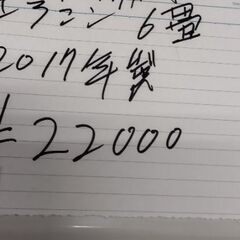 6畳
2017年製
¥22000